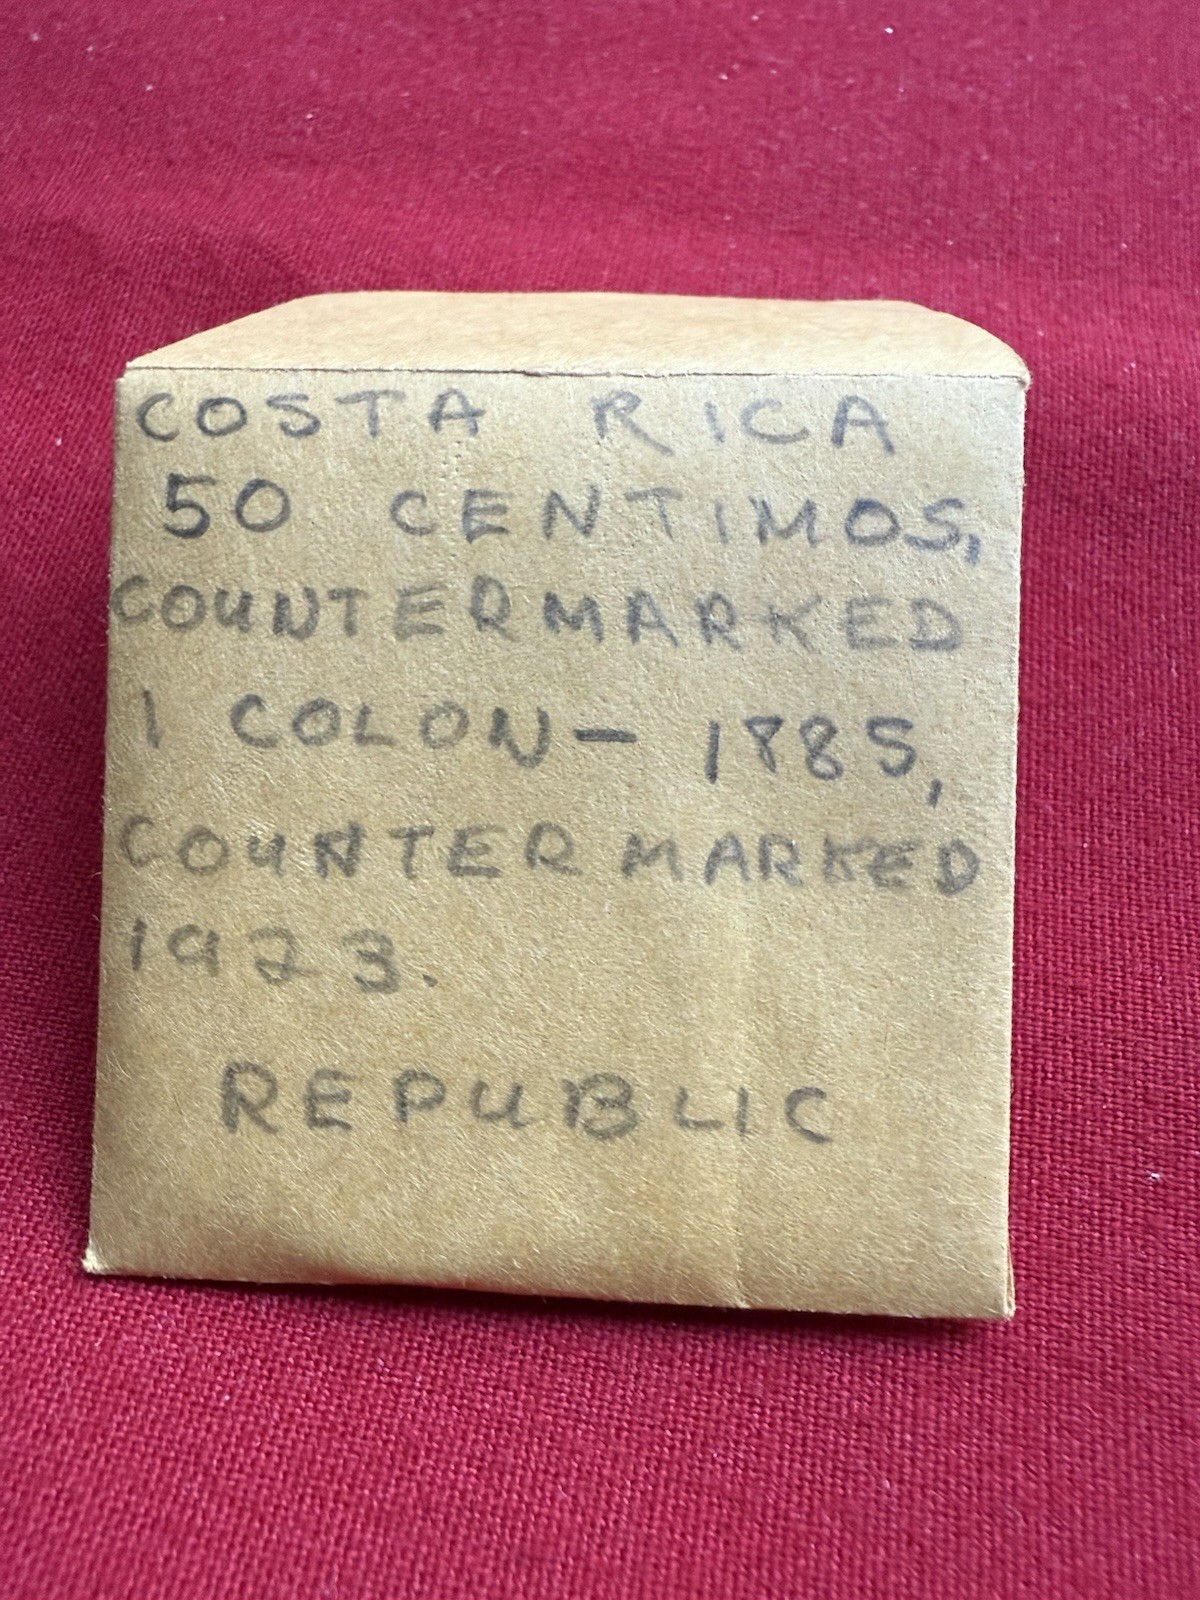 COSTA RICA
50 CENTIMOS,
COUNTERMARKED
1 COLON- 1885,
COUNTERMARKED
1923.
REPUBLIC